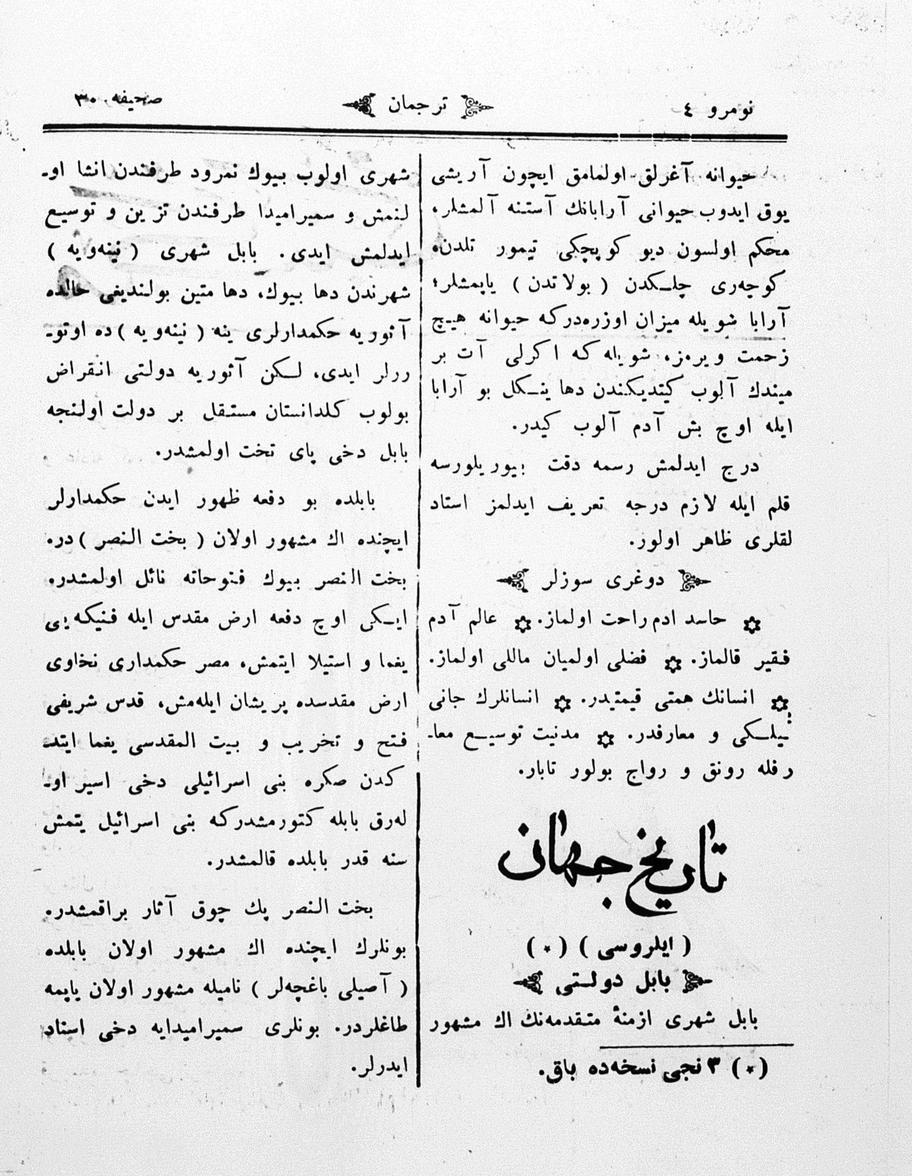 نومرو ٤
ترجمان
صحیفه ٣٠
حیوانه آغرلق اولمامق ایچون آریشی
یوق ایدوب حیوانی آرابانك آستنه آلمشلر،
محکم اولسون دیو کوپچکی تیمور تلدن،
کوچه‌ری چلـکدن ( بولاتدن ) یاپمشلر؛
آرابا شویله میزان اوزره‌درکه حیوانه هیـچ
زحمت ویرمز، شویله که اکرلی آت بر
میندك آلوب کیتدیکندن دها ینـکل بو آرابا
ایله اوچ بش آدم آلوب کیدر.
درج ایدلمش رسمه دقت بیوریلورسه
قلم ایله لازم درجه تعریف ایدلمز استاد
لقلری ظاهر اولور.
دوغری سوزلر
✡ حاسد ادم راحت اولماز. ✡ عالم آدم
فـقیر قالماز. ✡ فضلی اولمیان ماللی اولماز.
✡ انسانك همتی قیمتیدر. ✡ انسانلرك جانی
بیلـکی و معارفدر. ✡ مدنیت توسیـع معا-
رفله رونق و رواج بولور تابار.
تاریخ جهان
( ایلروسی ) (*)
بابل دولـتی
بابل شهری ازمنهٔ متـقدمه‌نك اك مشهور
(*) ٣ نجی نسخه‌ده باق.
شهری اولوب بیوك نمرود طرفندن انشا او-
لـنمش و سمیرامیدا طرفندن تزیین و توسیع
ایدلمش ایدی. بابل شهری ( نینه‌ویه )
شهرندن دها بیوك، دها متین بولندیغی حالده
آثوریه حکمدارلری ینه ( نینه‌ویه ) ده اوتو-
ررلر ایدی، لـکن آثوریه دولتی انـقراض
بولوب کلدانستان مستـقل بر دولت اولـنجه
بابل دخی پای تخت اولمشدر.
بابلده بو دفعه ظهور ایدن حکمدارلر
ایچنده اك مشهور اولان ( بخت النصر ) در.
بخت النصر بیوك فـتوحاته نائل اولمشدر.
ایـکی اوچ دفعه ارض مقدس ایله فـنیکه‌یی
یغما و استیلا ایتمش، مصر حکمداری نخاوی
ارض مقدسده پریشان ایله‌مش، قدس شریفی
فـتح و تخریب و بیت المقدسی یغما ایتد-
کدن صکره بنی اسرائیلی دخی اسیر او-
له‌رق بابله کتورمشدرکه بنی اسرائیل یتمش
سنه قدر بابلده قالمشدر.
بخت النصر پك چوق آثار براقمشدر.
بونلرك ایچنده اك مشهور اولان بابلده
( آصیلی باغچه‌لر ) نامیله مشهور اولان یاپمه
طاغلردر. بونلری سمیرامیدایه دخی اسناد
ایدرلر.